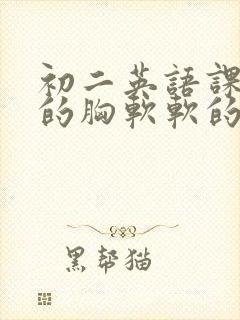 初二英語課
的胸軟軟的
黑帮猫